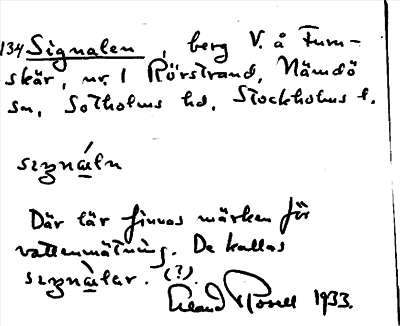 134 Signalen, berg V. å Furu-
skär, nr. 1 Rörstrand, Nämdö
sn, Sotholms hd, Stockholms l.
sıgnáln
Där lär finnas märken för
vattenmätning. De kallas
sıgnàler. (?).
Erland Rosell 1933.